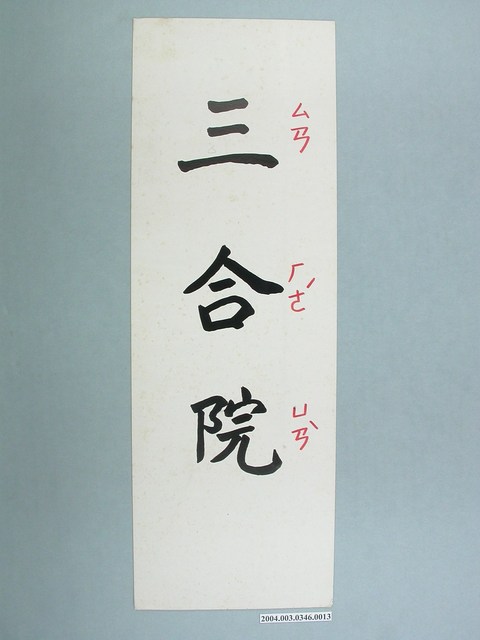 三合院
ㄙㄢ
ㄏㄜˊ
ㄩㄢˋ
2004.003.0346.0013